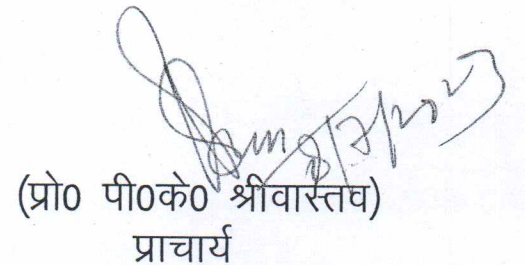 (प्रो0 पी0के0 श्रीवास्तव)
प्राचार्य